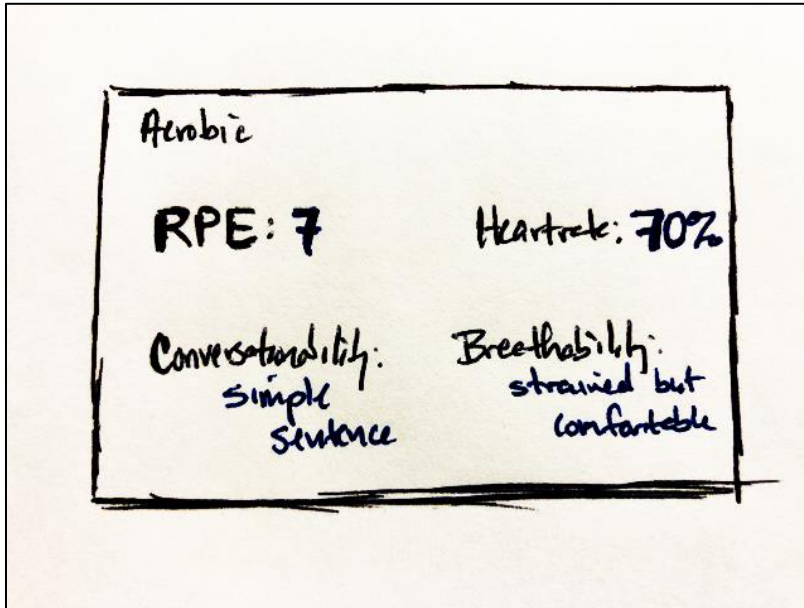 Aerobic
RPE: 7
Heartrate: 70%
Conversationability:
simple
sentence
Breathability:
strained but
comfortable